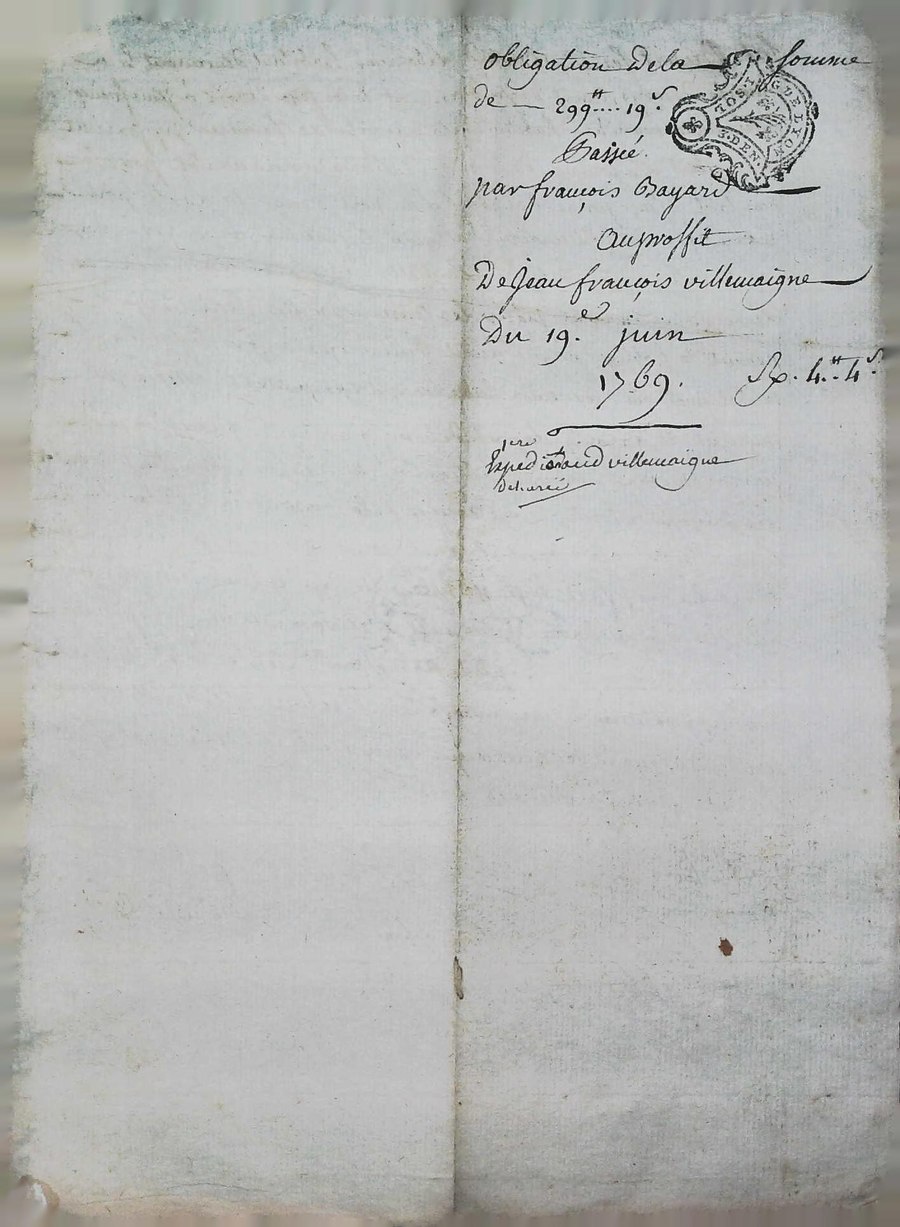 obligation dela somme
de 299ᵗᵗ 19ˢ
Passée
par françois Bayard
Auproffit
De Jean françois villemaigne
Du 19.e juin
1769. 4ᵗᵗ 4ˢ
1ere
Expedié aud villemaigne
3. DEN.